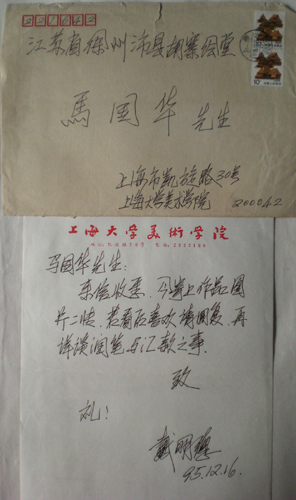 江苏省徐州沛县胡寨绘画
馬国华先生
上海市凯旋路30号
上海大学美术学院 200042
上海大学美術学院
马国华先生:
来信收悉,今寄上作品图
片二帧,若看后喜欢请回复,再
详谈润笔与汇款之事.
致
礼!
戴明德
95.12.16.